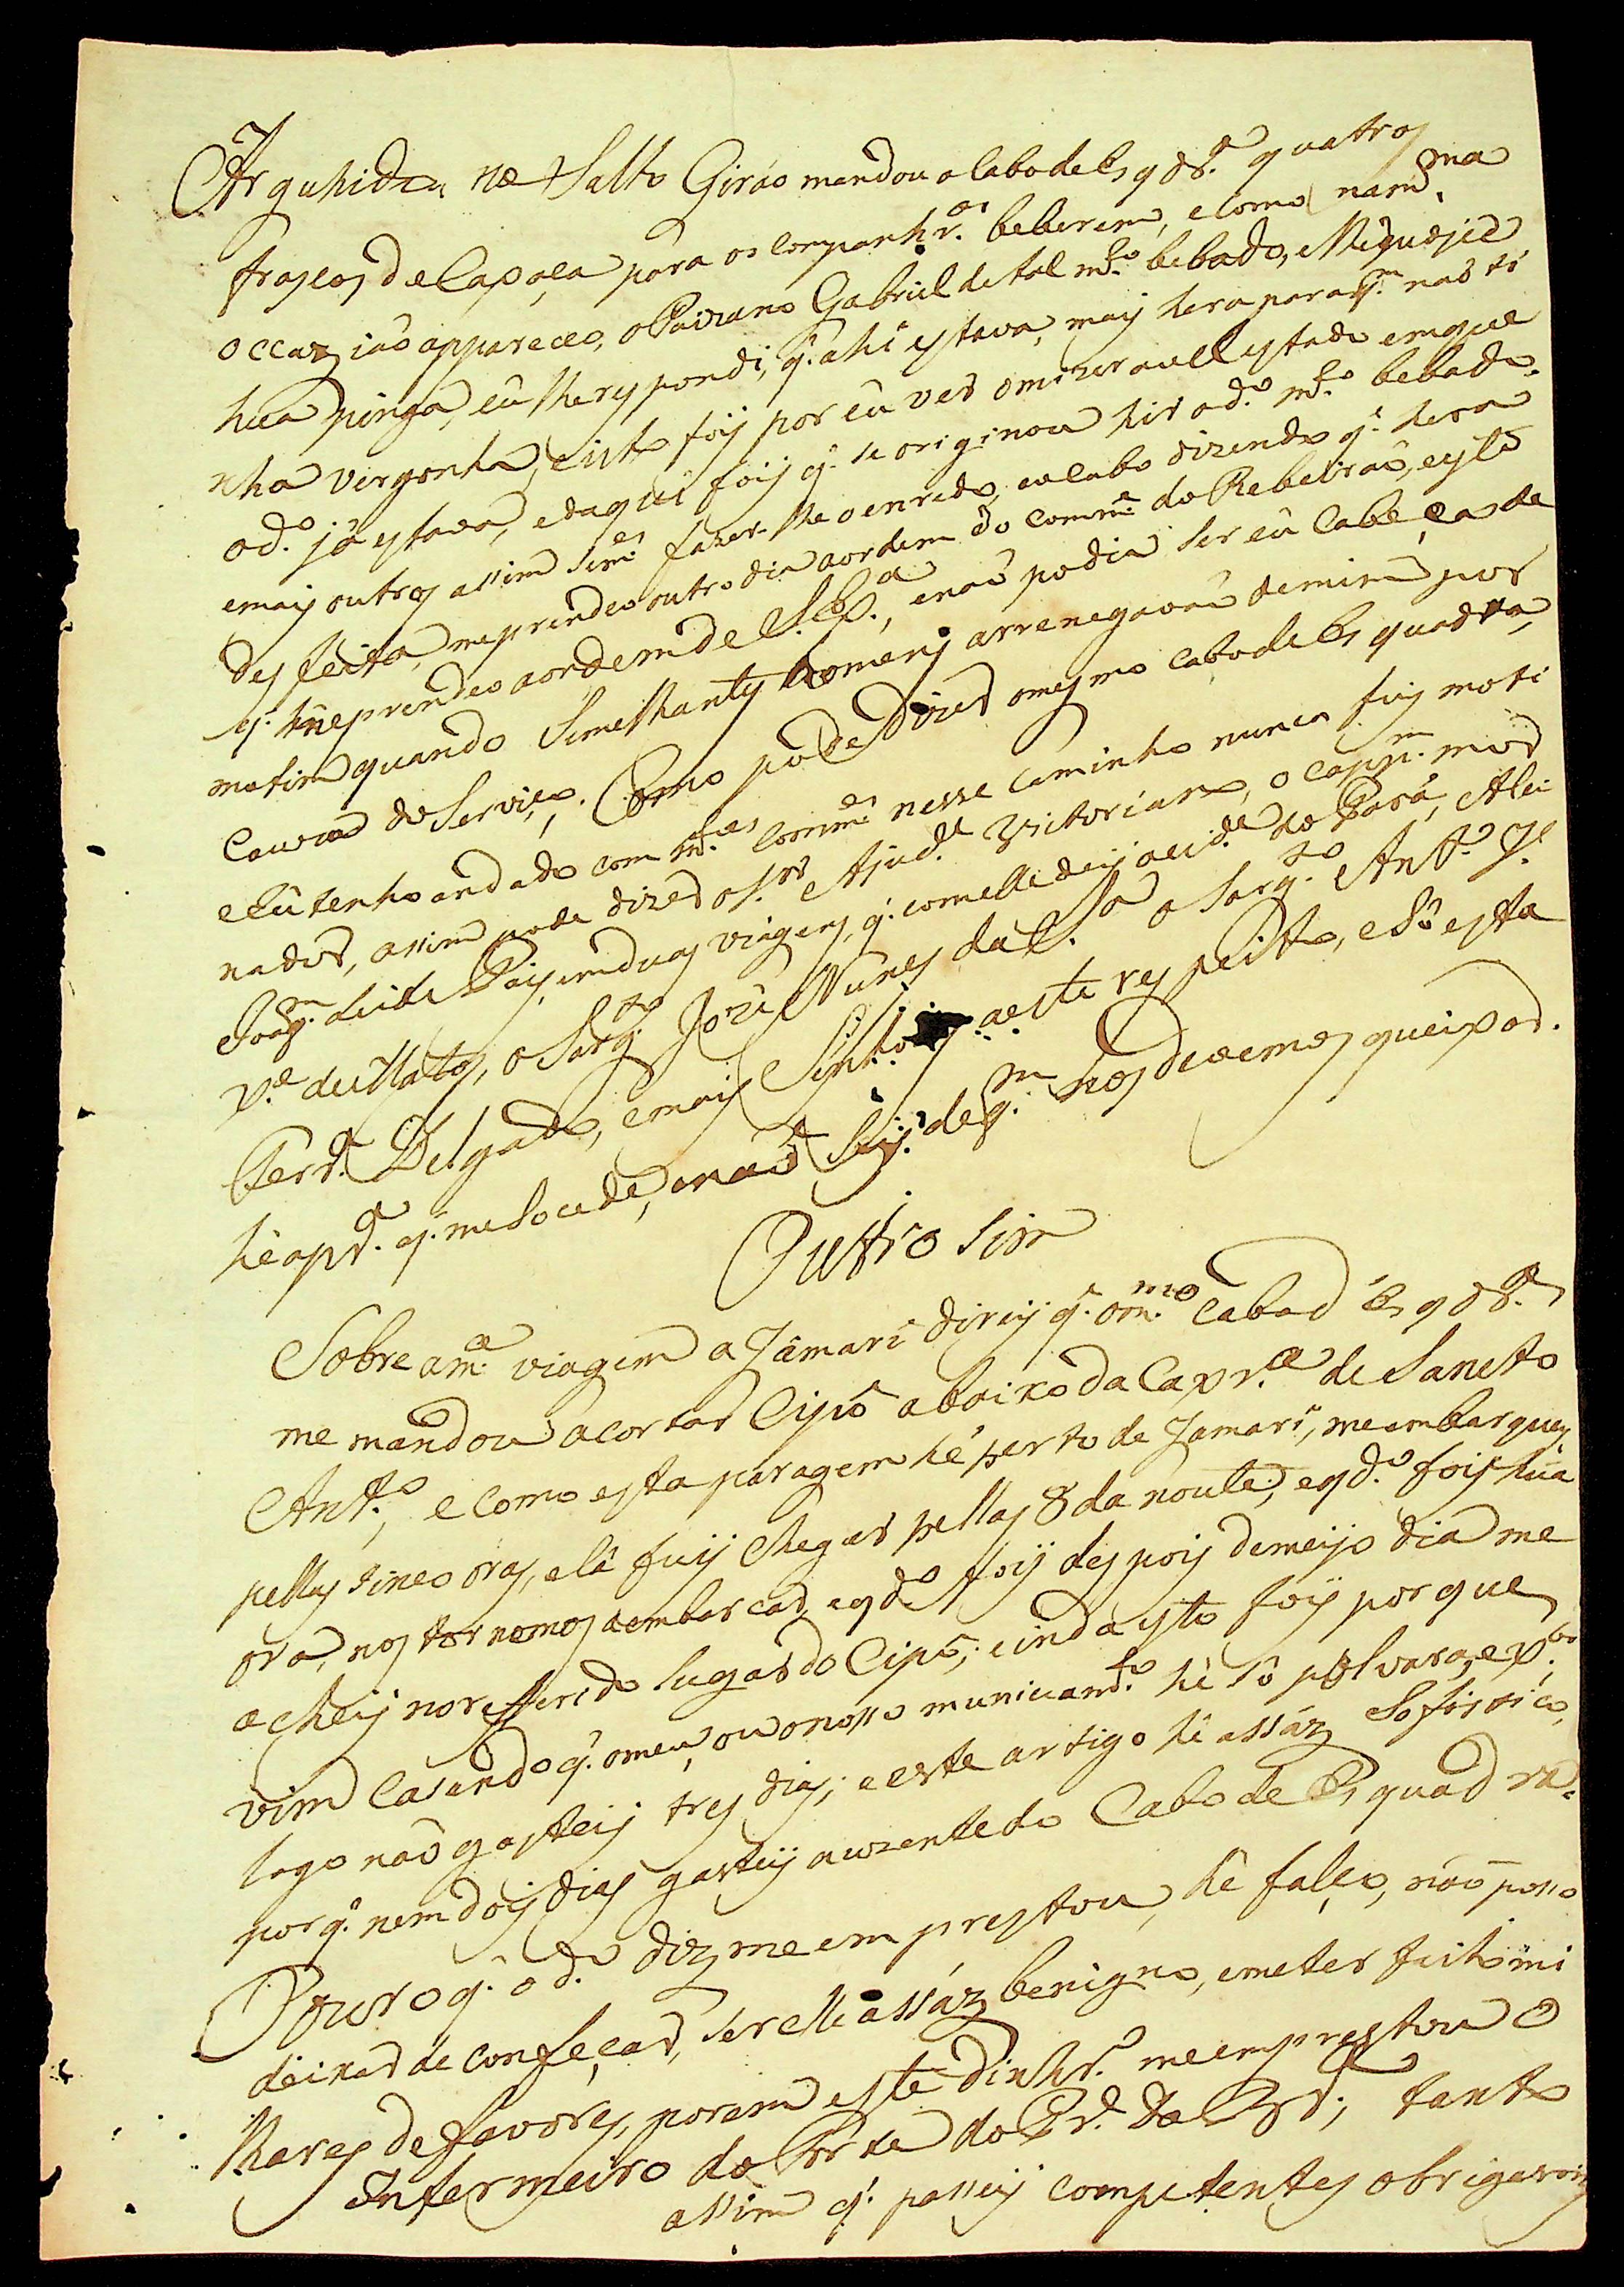 Arguhida no Salto Giráo mandou o Cabo de Esqdr.ª quatro
frascos de Caxaça para os companhr.os beberem, e como nam.ma
occaz ião appareceo, o Paizano Gabriel de tal m.to bebado, e Me pedio
hua pinga, eu lhe respondi, q. ahi estava, mais hera para q.m não ti
nha vergonha, e isto foij por eu ver o mizeravel estado em que
o d.o já estava, e daqui foij q. se originou hir o d.o m.to bebado
e mais outros assim sem.es fazer-lhe o enredo, e o Cabo dizendo q. hera
desfeita, me prendeo outro dia a ordem do Comm.e do Ribeirão, e esté
q. me prendeo a ordem de S. Ex.ª, e não podia ser eu Cabeça de
motim quando Semelhantes homens arrenegavão de mim por
Cauzar do Serviço. Como pode dizer o mesmo Cabo de Es quadra,
e Eu tenho andado com m.tos Comm.es nesse Caminho nunca fuij moti
nador, assim pode dizer o S.or Ajud.e Victoriano, o Capp.m mor
Joaq.m de Pais, em duas viagens, q. com elle deij a Cid.e do Pará, Alei
x.e de Matos, o Sarg.to Jozé Nunes da C.ª o Sarg.to Ant.o J.e
Ferr.ª Delgado, e mais a este respeito, e Só esta
hé a pr.ª q. me Socede, e não Seij de q.m nos devemos queixar.
Outro Sim
Sobre a m.ª viagem a Jámarí direij q. o m.mo Cabo d' Esqdr.ª
me mandou a cortar Cipó abaixo da Caxr.ª de Sancto
Ant.o, e como esta paragem hé perto de Jamarí, me embarquey
pellas sinco oras, e lá fuij chegar pellas 8 da noute, e qd.o foij hũa
ora, nos tornomos a embarcar, e qd.o foij despois de meijo dia me
acheij no refferido lugar do Cipó, e ainda isto foij porque
vim Casando q. o meu, ou o nosso municiam.to hé só polvara, e xb.o
logo não gasteij tres dias; a este artigo hé assáz Sofistico,
por q. nem dois dias gasteij auzente do Cabo de Es quadra.
O ouro q. o d.o diz me em prestou, hé falço, não posso
deixar de confeçar, ser elle assáz benigno, e me ter feito mi
lhares de favores, porem este dinhr.o me emprestou o
Infermeiro do For te do Pr. da Br.ª; tanto
assim q. passeij competentes obrigasois